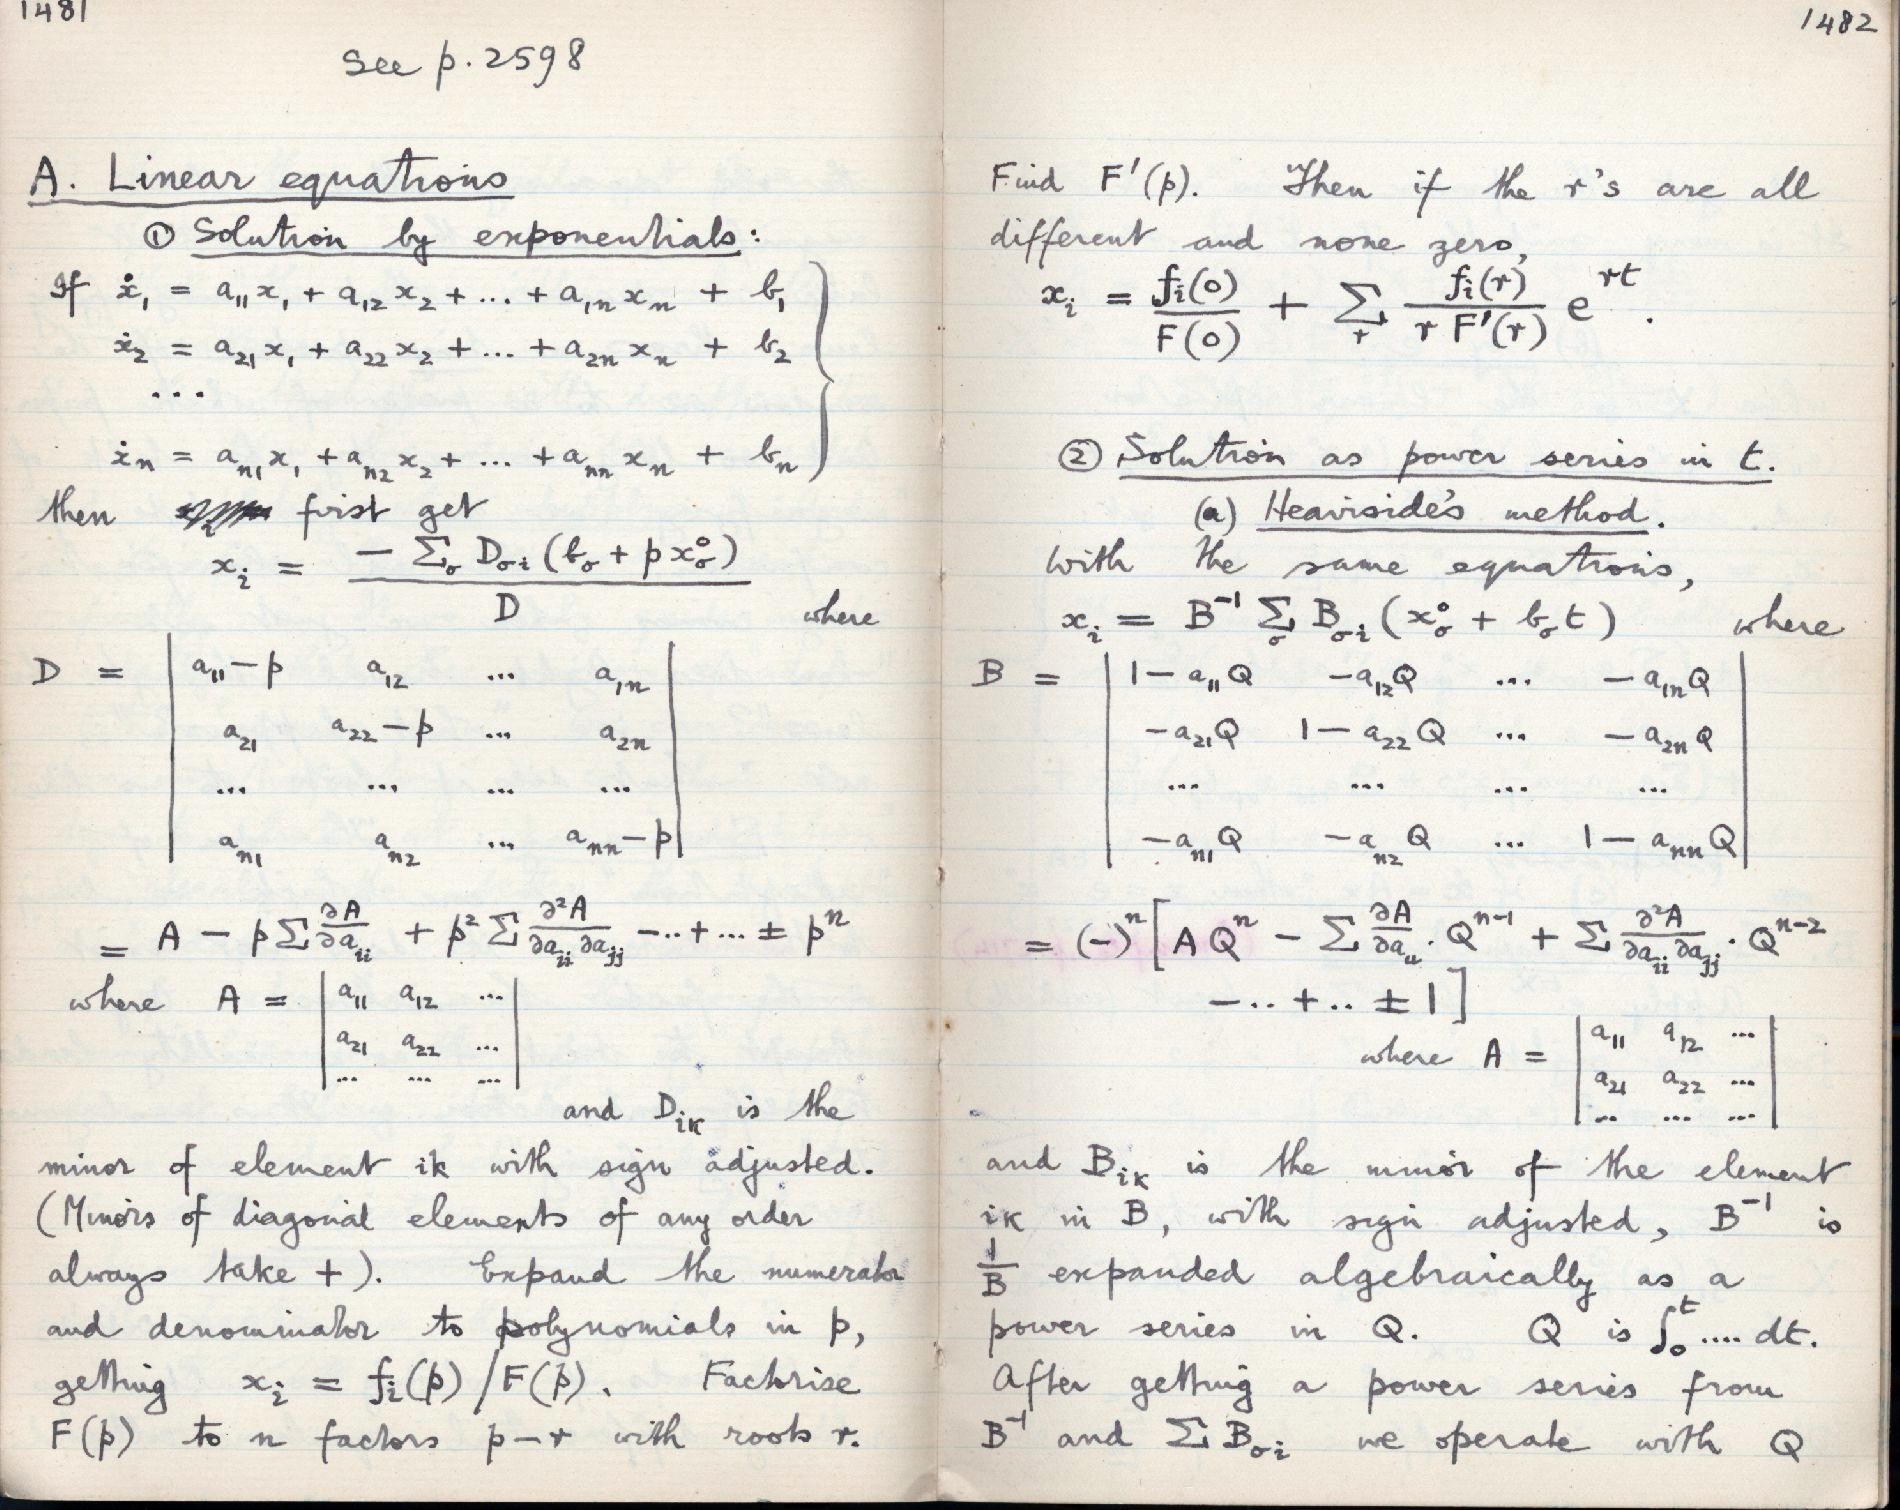 1481
See p. 2598
A. Linear equations
① Solution by exponentials:
If ẋ₁ = a₁₁x₁ + a₁₂x₂ + ... + a₁ₙxₙ + b₁
ẋ₂ = a₂₁x₁ + a₂₂x₂ + ... + a₂ₙxₙ + b₂
...
ẋₙ = aₙ₁x₁ + aₙ₂x₂ + ... + aₙₙxₙ + bₙ
then first get
xᵢ = − Σσ Dσi (bσ + p x°σ) / D where
D = | a₁₁−p a₁₂ ... a₁ₙ |
| a₂₁ a₂₂−p ... a₂ₙ |
| ... ... ... ... |
| aₙ₁ aₙ₂ ... aₙₙ−p |
= A − p Σ ∂A/∂aᵢᵢ + p² Σ ∂²A/∂aᵢᵢ∂aⱼⱼ − .. + ... ± pⁿ
where A = | a₁₁ a₁₂ ... |
| a₂₁ a₂₂ ... |
| ... ... ... |
and Dik is the
minor of element ik with sign adjusted.
(Minors of diagonal elements of any order
always take +). Expand the numerator
and denominator to polynomials in p,
getting xᵢ = fᵢ(p)/F(p). Factorise
F(p) to n factors p−r with roots r.
1482
Find F'(p). Then if the r's are all
different and none zero,
xᵢ = fᵢ(0)/F(0) + Σr fᵢ(r)/(r F'(r)) e^rt.
② Solution as power series in t.
(a) Heaviside's method.
With the same equations,
xᵢ = B⁻¹ Σσ Bσi (x°σ + bσt) where
B = | 1−a₁₁Q −a₁₂Q ... −a₁ₙQ |
| −a₂₁Q 1−a₂₂Q ... −a₂ₙQ |
| ... ... ... ... |
| −aₙ₁Q −aₙ₂Q ... 1−aₙₙQ |
= (−)ⁿ [ A Qⁿ − Σ ∂A/∂aᵢᵢ . Qⁿ⁻¹ + Σ ∂²A/∂aᵢᵢ∂aⱼⱼ . Qⁿ⁻²
− .. + .. ± 1 ]
where A = | a₁₁ a₁₂ ... |
| a₂₁ a₂₂ ... |
| ... ... ... |
and Bik is the minor of the element
ik in B, with sign adjusted, B⁻¹ is
1/B expanded algebraically as a
power series in Q. Q is ∫₀ᵗ .... dt.
After getting a power series from
B⁻¹ and Σ Bσi we operate with Q